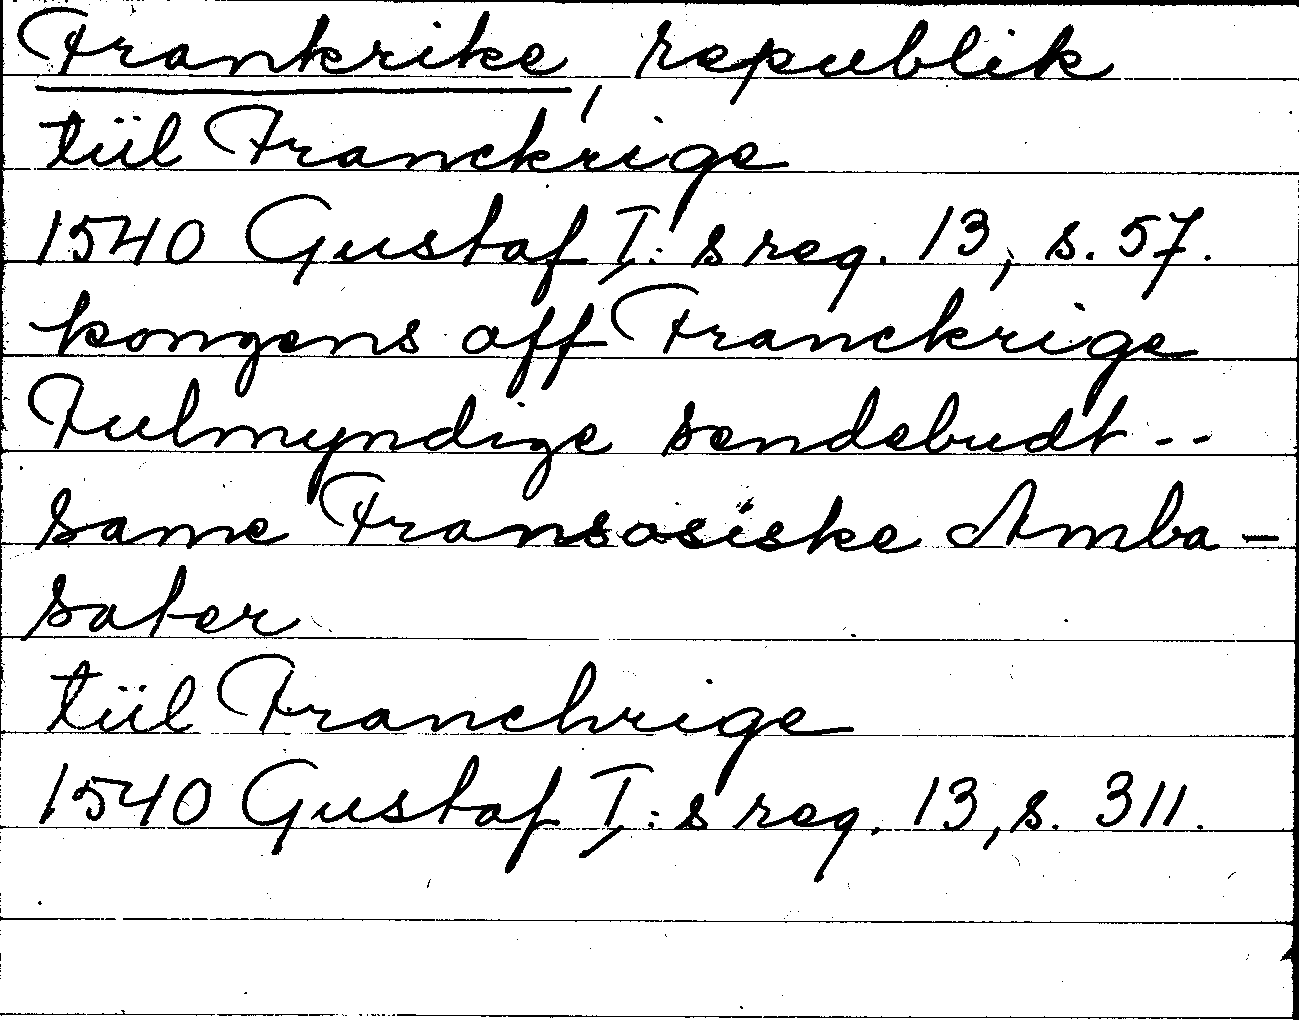 Frankrike, republik
tiil Franckrige
1540 Gustaf I:s reg. 13, s. 57.
kongens off Franckrige
Fulmyndige sendebudt --
same Fransosiske Amba-
sater
tiil Franchrige
1540 Gustaf I:s reg. 13, s. 311.